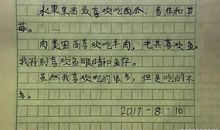 水果里面最喜欢吃西瓜、香蕉和草
莓。
肉类里面喜欢吃牛肉,尤其喜欢鱼。
我特别喜欢鱼眼睛和鱼籽。
虽然我喜欢吃的很多,但是吃的不
多。
2017-8-10